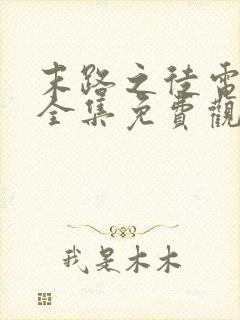 末路之徒電
全集免費觀
我是木木